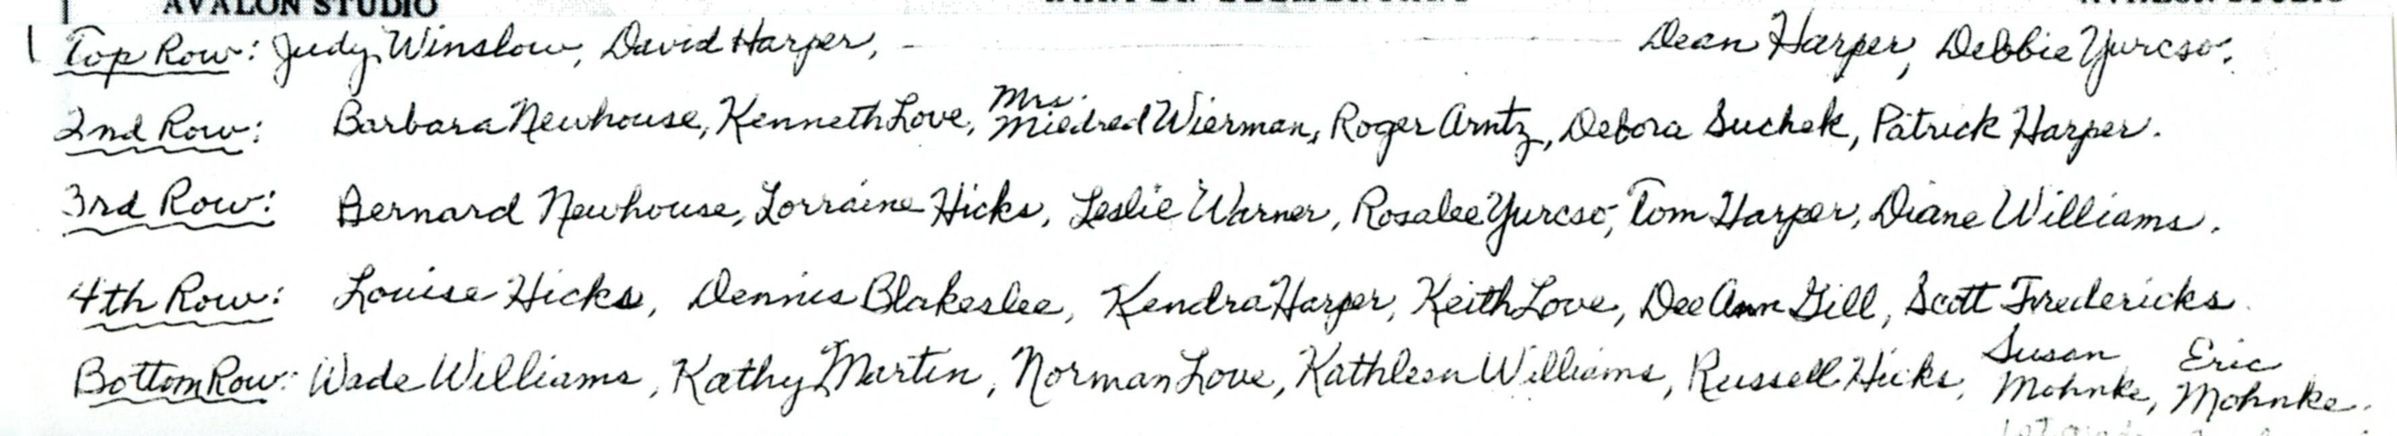 AVALON STUDIO
Top Row: Judy Winslow, David Harper, Dean Harper, Debbie Yurcso.
2nd Row: Barbara Newhouse, Kenneth Love, Mrs. Mildred Wierman, Roger Arntz, Debora Suchek, Patrick Harper.
3rd Row: Bernard Newhouse, Lorraine Hicks, Leslie Warner, Rosalee Yurcso, Tom Harper, Diane Williams.
4th Row: Louise Hicks, Dennis Blakeslee, Kendra Harper, Keith Love, DeeAnn Gill, Scott Fredericks
Bottom Row: Wade Williams, Kathy Martin, Norman Love, Kathleen Williams, Russell Hicks, Susan Mohnke, Eric Mohnke.